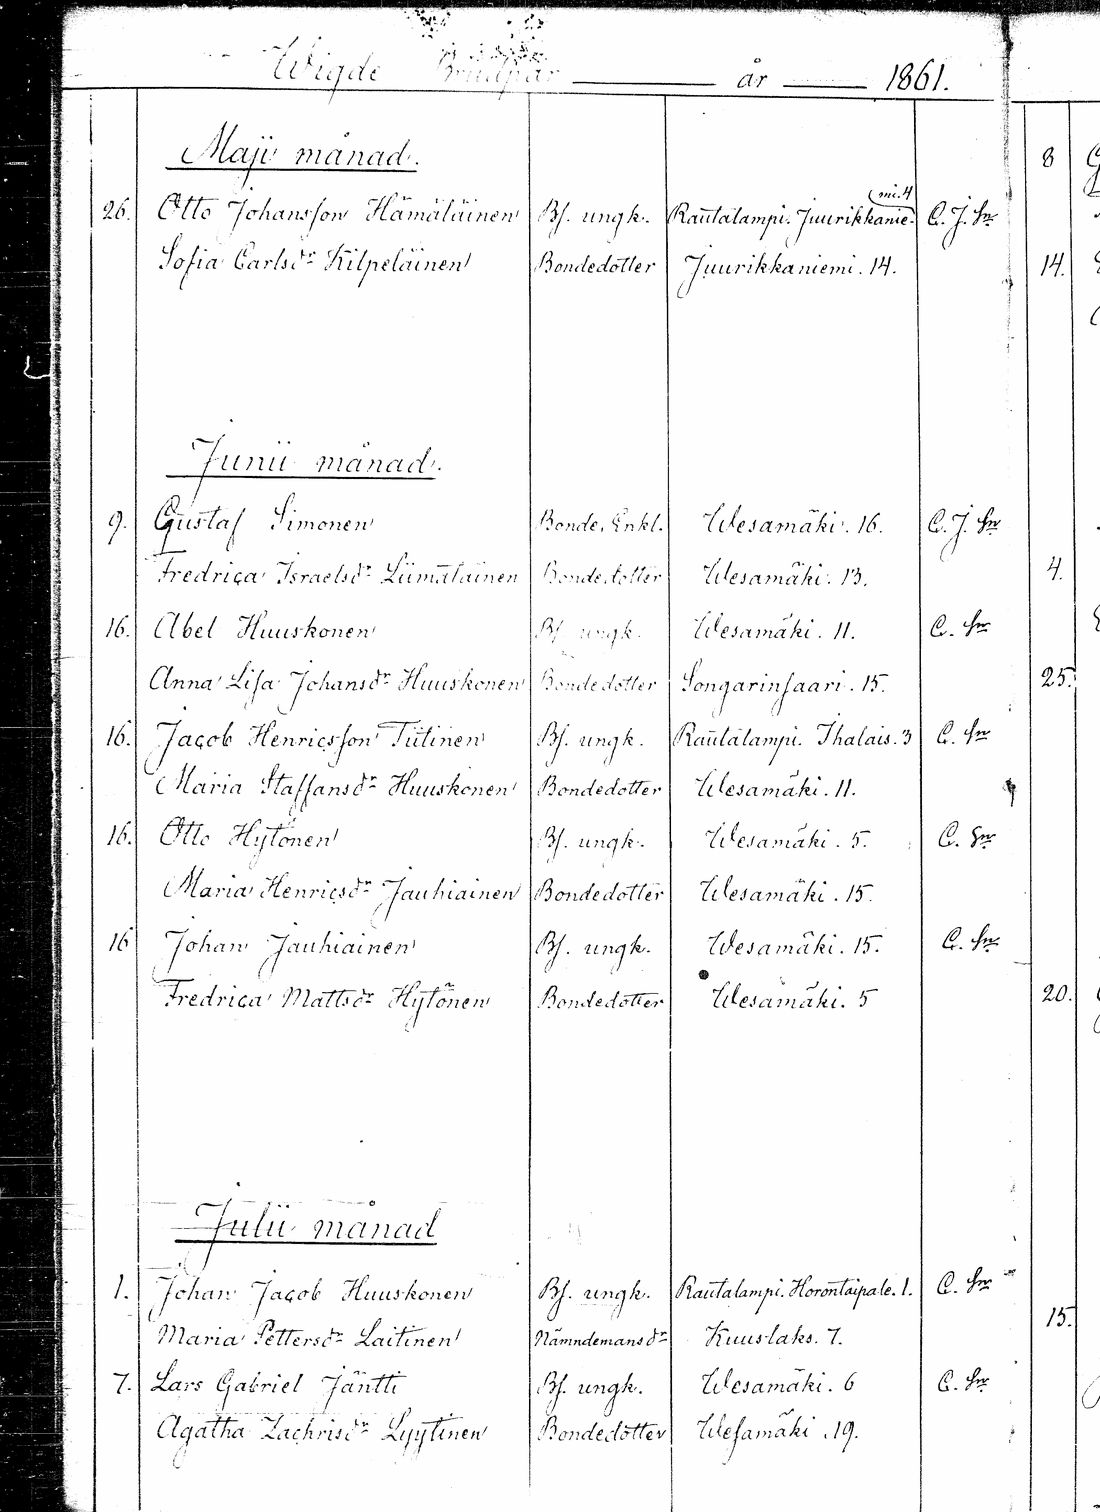 Wigde Brudpar år 1861.
Maji månad. 8
26. Otto Johansson Hämäläinen Bs. ungk. Rautalampi. Juurikkanie- mi. 4 C. J. Sn
Sofia Carlsdr Kilpeläinen Bondedotter Juurikkaniemi. 14. 14.
Junii månad.
9. Gustaf Simonen Bonde, Enkl. Wesamäki. 16. C. J. Sn
Fredrica Israelsdr Liimatainen Bondedotter Wesamäki. 13. 4.
16. Abel Huuskonen Bs. ungk. Wesamäki. 11. C. Sn
Anna Lisa Johansdr Huuskonen Bondedotter Songarinsaari. 15. 25.
16. Jacob Henricsson Tiitinen Bs. ungk. Rautalampi. Ihalais. 3 C. Sn
Maria Staffansdr Huuskonen Bondedotter Wesamäki. 11.
16. Otto Hytönen Bs. ungk. Wesamäki. 5. C. Sn
Maria Henricsdr Jauhiainen Bondedotter Wesamäki. 15.
16 Johan Jauhiainen Bs. ungk. Wesamäki. 15. C. Sn
Fredrica Mattsdr Hytönen Bondedotter Wesamäki. 5 20.
Julii månad
1. Johan Jacob Huuskonen Bs. ungk. Rautalampi. Horontaipale. 1. C. Sn
Maria Pettersdr Laitinen Nämndemansdr Kuuslaks. 7. 15.
7. Lars Gabriel Jäntti Bs. ungk. Wesamäki. 6 C. Sn
Agatha Zachrisdr Lyytinen Bondedotter Wesamäki. 19.